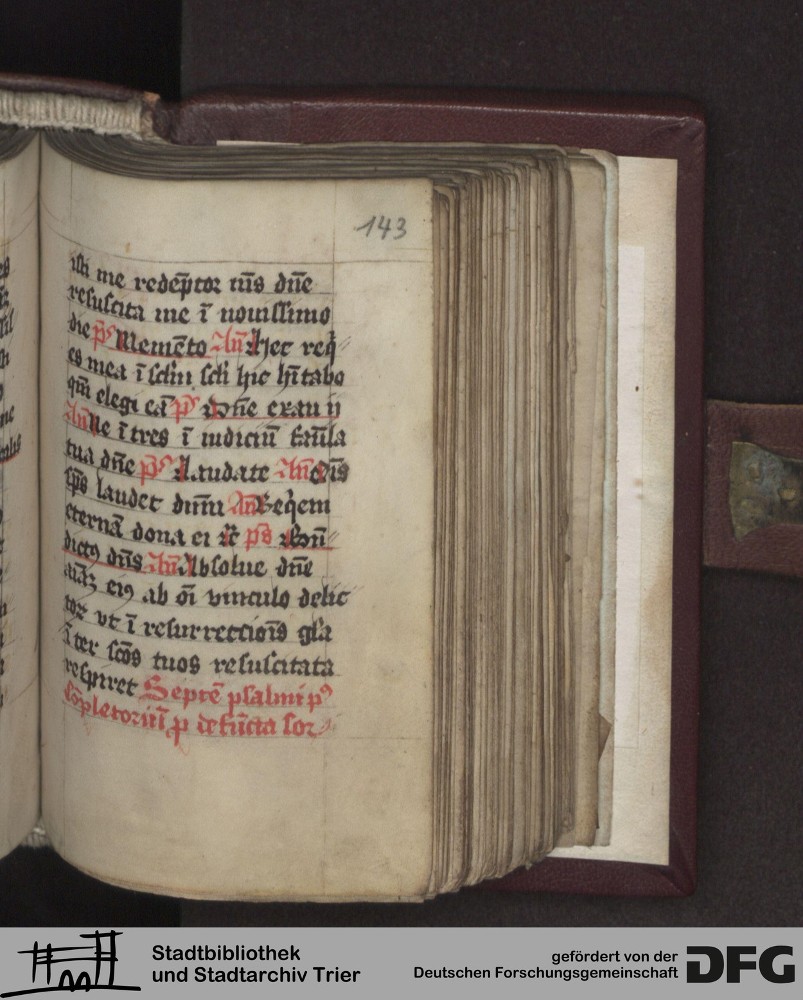 143
isti me redēptoꝛ m̄s dn̄e
resuscita me ī nouissimo
die ps Memēto An̄ Hec req̄
es mea ī sclm̄ scl̄i hic hītabo
qm̄ elegi eā ps dom̄e exau
An̄ Ne ītres ī iudiciū
tua dn̄e ps Laudate An̄ om̄s
sp̄s laudet dn̄m An̄ Reqem
eternā dona ei ps Bon̄
dictꝰ dn̄s An̄ Absolue dn̄e
aīaꝫ eiꝰ ab oī vinculo delic
toꝝ vt ī resurrectiōis gl̄a
īter sc̄os tuos resuscitata
respiret Septē psalmi p
cōpletoriū p defūcta soꝛ
Stadtbibliothek
und Stadtarchiv Trier
gefördert von der
Deutschen Forschungsgemeinschaft
DFG